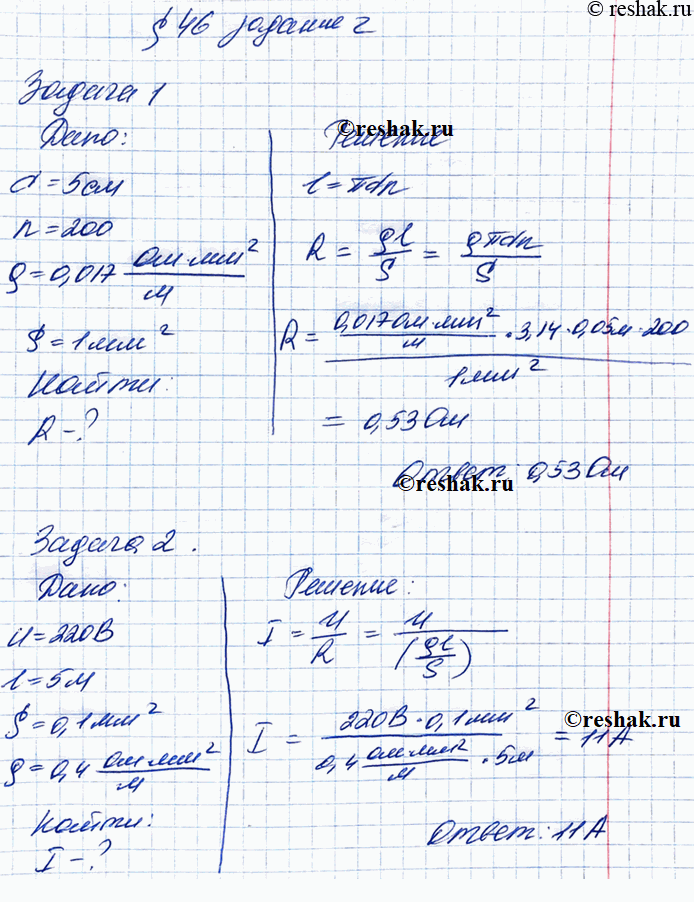 © reshak.ru
§ 46 задание 2
Задача 1
Дано:
d = 5см
n = 200
ρ = 0,017 Ом·мм²/м
S = 1мм²
Найти:
R - ?
Решение
©reshak.ru
l = πdn
R = ρl/S = ρπdn/S
R = 0,017 Ом·мм²/м · 3,14 · 0,05м · 200 / 1мм²
= 0,53 Ом
Ответ: 0,53 Ом
©reshak.ru
Задача 2.
Дано:
U = 220В
l = 5м
S = 0,1мм²
ρ = 0,4 Ом·мм²/м
Найти:
I - ?
Решение:
I = U/R = U/(ρl/S)
I = 220В · 0,1мм² / 0,4 Ом·мм²/м · 5м = 11А
©reshak.ru
Ответ: 11А